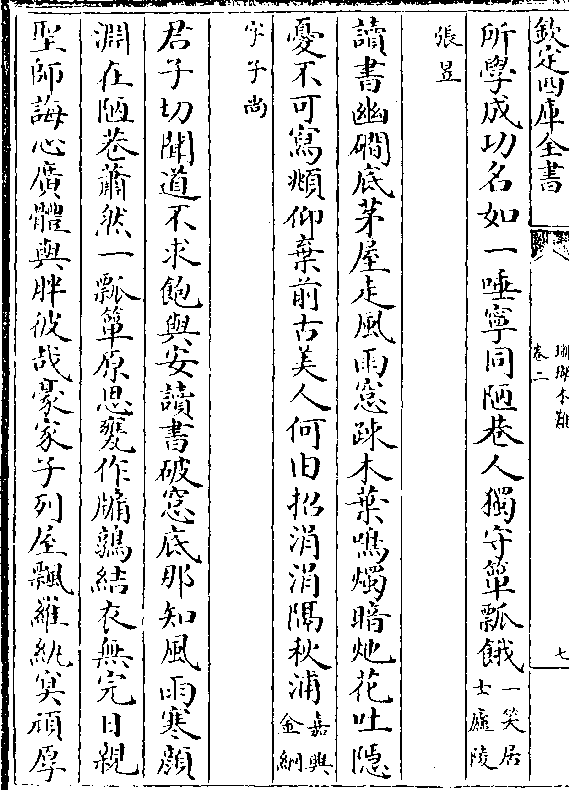 欽定四庫全書
珊瑚木難
卷二
七
所學成功名如一唾寧同陋巷人獨守簞瓢餓一笑居士廬陵
張昱
讀書幽磵底茅屋走風雨窓疎木葉鳴燭暗灺花吐隠
憂不可寫頫仰棄前古美人何由招涓涓隔秋浦嘉興金絅
字子尚
君子切聞道不求飽與安讀書破窓底那知風雨寒顔
淵在陋巷蕭然一瓢簞原思甕作牖鶉結衣無完日親
聖師誨心廣體與胖彼哉豪家子列屋飄羅紈冥頑厚